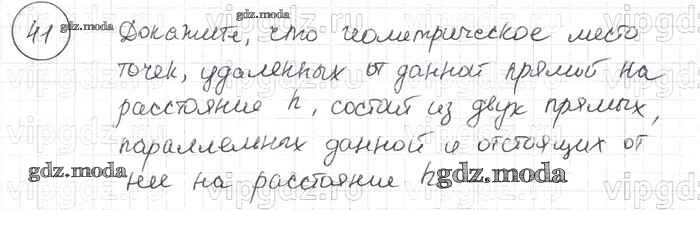 41 Докажите, что геометрическое место
точек, удаленных от данной прямой на
расстояние h, состоит из двух прямых,
параллельных данной и отстоящих от
нее на расстояние h
gdz.moda
gdz.moda
gdz.moda
gdz.moda